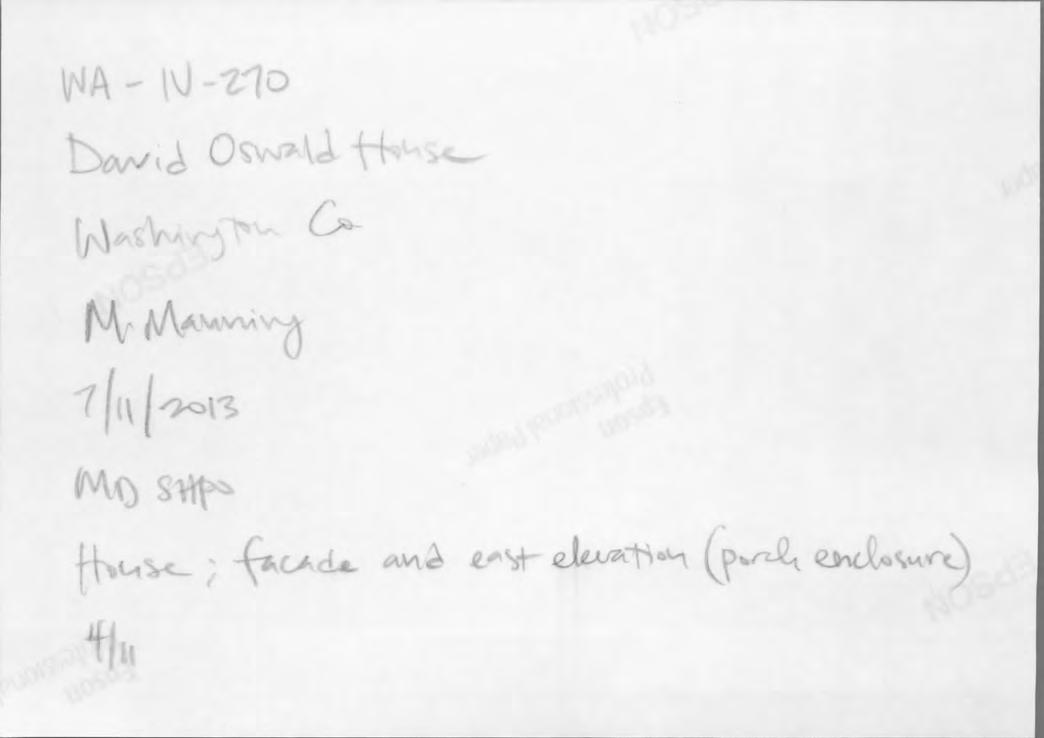 WA - IV - 270
David Oswald House
Washington Co
M. Manning
7/11/2013
MD SHPO
House; facade and east elevation (porch enclosure)
4/11
EPSON
Epson
Professional Paper
EPSON
EPSON
Epson
Professional